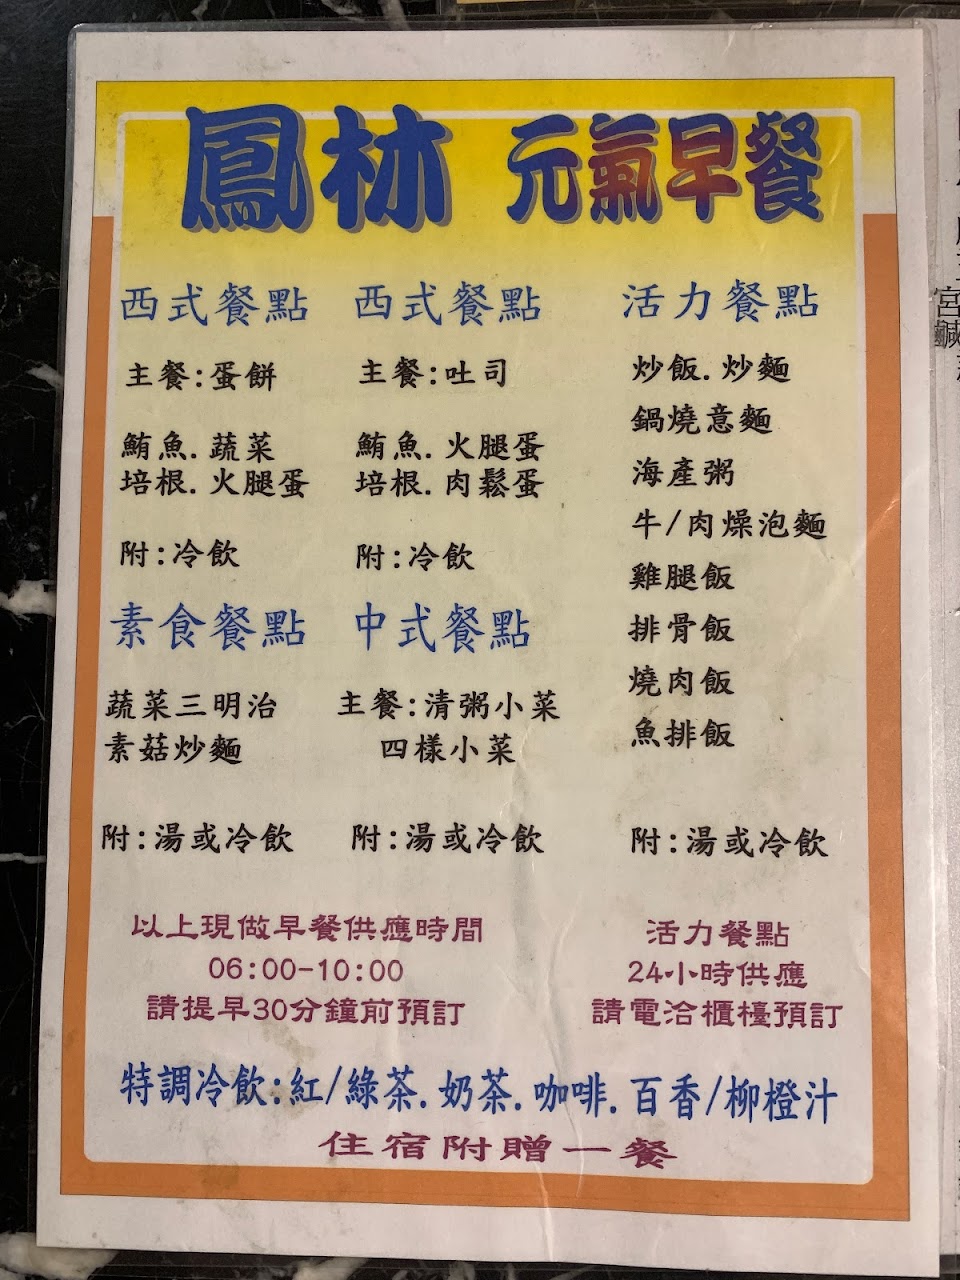 鳳林 元氣早餐
西式餐點
主餐:蛋餅
鮪魚.蔬菜
培根.火腿蛋
附:冷飲
西式餐點
主餐:吐司
鮪魚.火腿蛋
培根.肉鬆蛋
附:冷飲
活力餐點
炒飯.炒麵
鍋燒意麵
海產粥
牛/肉燥泡麵
雞腿飯
排骨飯
燒肉飯
魚排飯
附:湯或冷飲
素食餐點
蔬菜三明治
素菇炒麵
附:湯或冷飲
中式餐點
主餐:清粥小菜
四樣小菜
附:湯或冷飲
以上現做早餐供應時間
06:00-10:00
請提早30分鐘前預訂
活力餐點
24小時供應
請電洽櫃檯預訂
特調冷飲:紅/綠茶.奶茶.咖啡.百香/柳橙汁
住宿附贈一餐
宮